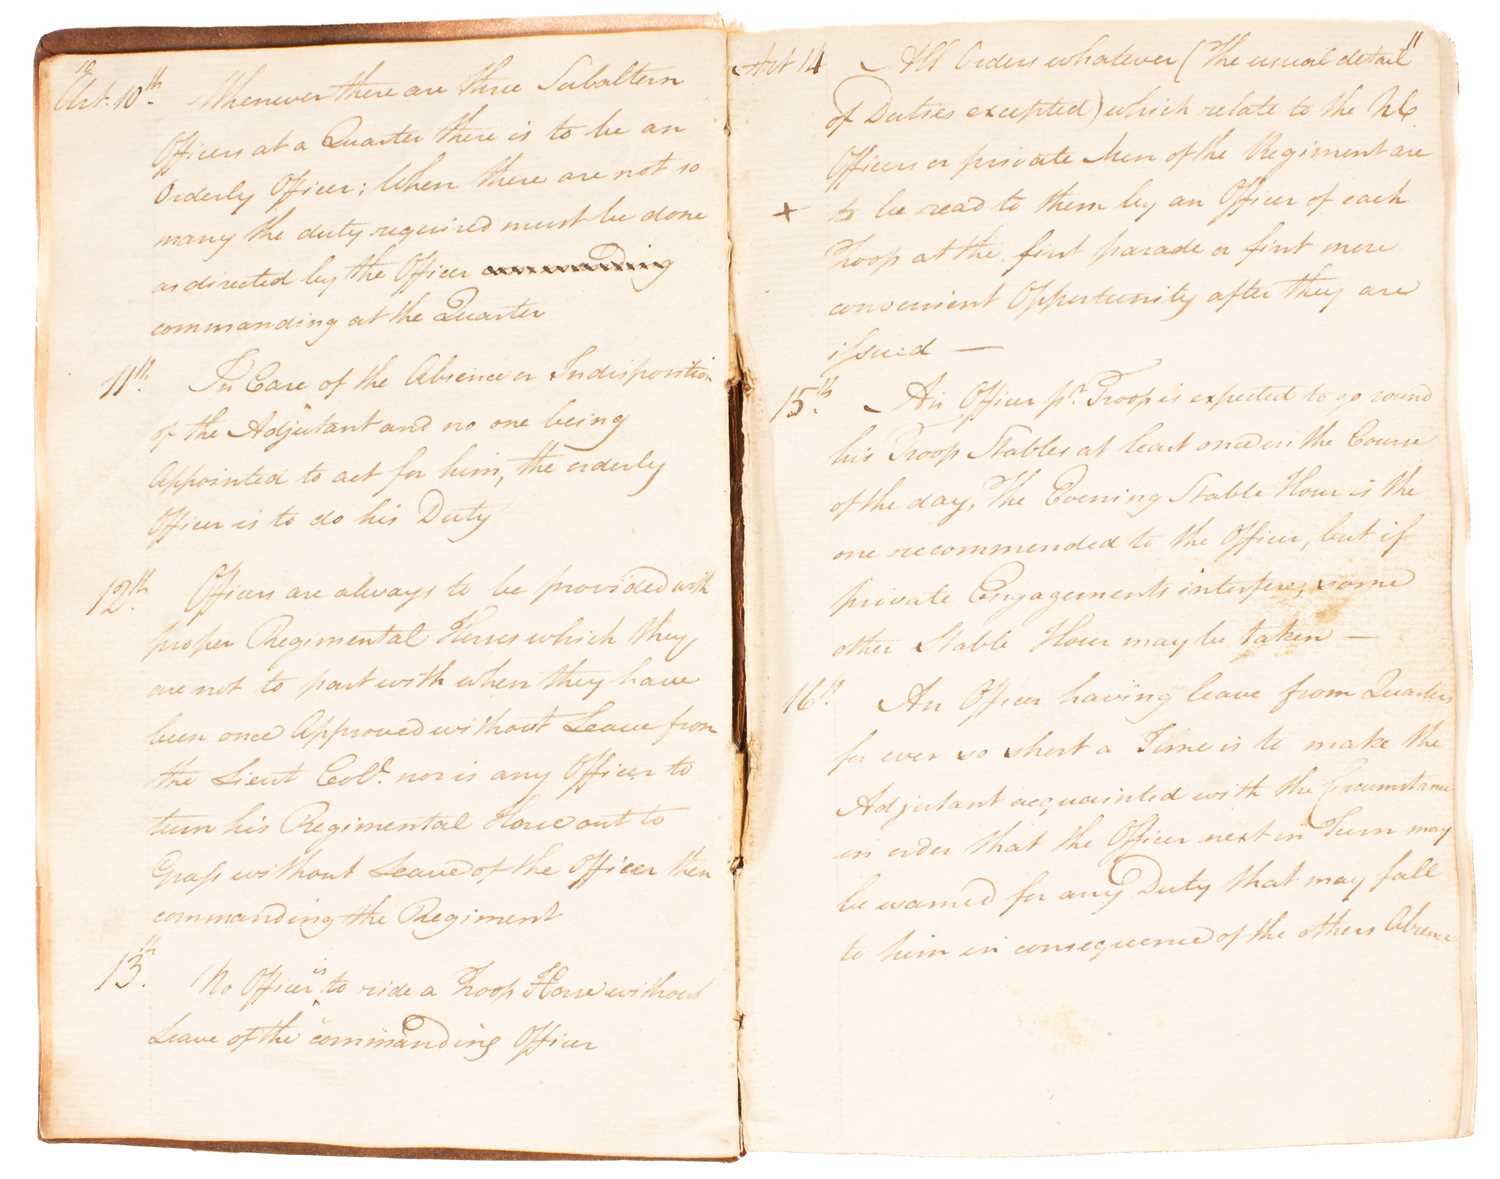 10
Art. 10th. Whenever there are three Subaltern
Officers at a Quarter there is to be an
Orderly Officer; When there are not so
many the duty required must be done
as directed by the Officer commanding
commanding at the Quarter
11th. In Case of the Absence or Indisposition
of the Adjutant and no one being
Appointed to act for him, the orderly
Officer is to do his Duty
12th. Officers are always to be provided with
proper Regimental Horses which they
are not to part with when they have
been once Approved without Leave from
the Lieut Col. nor is any Officer to
turn his Regimental Horse out to
Grass without Leave of the Officer then
commanding the Regiment
13th. No Officer is to ride a Troop Horse without
Leave of the commanding Officer
11
Art 14 All Orders whatever (The usual detail
of Duties excepted) which relate to the NC.
Officers or private Men of the Regiment are
x to be read to them by an Officer of each
Troop at the first parade or first more
convenient Opportunity after they are
issued —
15th. An Officer pr. Troop is expected to go round
his Troop Stables at least once in the Course
of the day, The Evening Stable Hour is the
one recommended to the Officer, but if
private Engagements interfere, some
other Stable Hour may be taken —
16th. An Officer having leave from Quarters
for ever so short a Time is to make the
Adjutant acquainted with the Circumstance
in order that the Officer next in Turn may
be warned for any Duty that may fall
to him in consequence of the others Absence